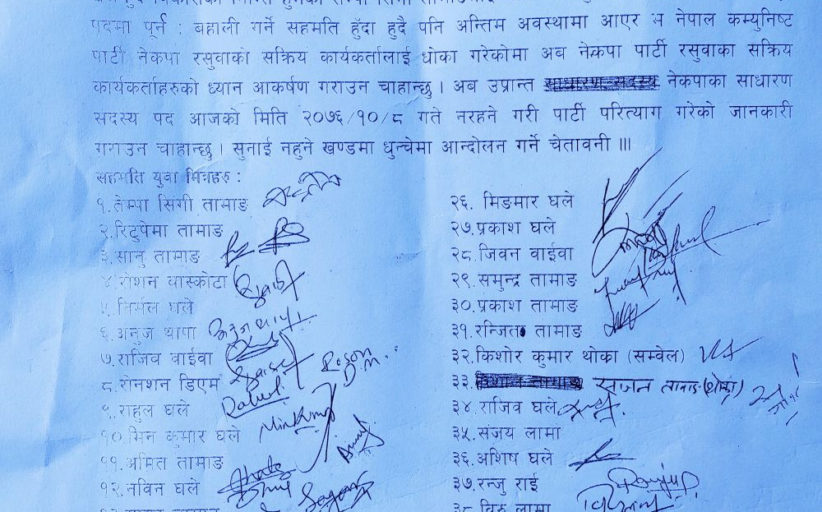 पदमा पुर्न : बहाली गर्ने सहमति हुँदा हुदै पनि अन्तिम अवस्थामा आएर म नेपाल कम्युनिष्ट
पार्टी नेकपा रसुवाको सक्रिय कार्यकर्तालाई धोका गरेकोमा अब नेकपा पार्टी रसुवाका सक्रिय
कार्यकर्ताहरुको ध्यान आकर्षण गराउन चाहान्छु । अब उप्रान्त साधारण सदस्य नेकपाका साधारण
सदस्य पद आजको मिति २०७६/१०/८ गते नरहने गरी पार्टी परित्याग गरेको जानकारी
गराउन चाहान्छु । सुनाई नहुने खण्डमा धुन्चेमा आन्दोलन गर्ने चेतावनी ॥।
सहमति युवा मित्रहरु :
१.तेम्पा सिंगी तामाङ
२.रिटुपेमा तामाङ
३.सानु तामाङ
४.रोशन वास्कोटा
५.निर्मल घले
६.अनुज थापा अनुज थापा
७.राजिव वाईवा
८.रोनशन डिएम Roson D.M.
९.राहुल घले Rahul
१०.मिन कुमार घले
११.अमित तामाङ
१२.नविन घले
२६. मिङमार घले
२७.प्रकाश घले
२८.जिवन वाईवा
२९.समुन्द्र तामाङ
३०.प्रकाश तामाङ
३१.रन्जित तामाङ
३२.किशोर कुमार थोका (सम्वेल)
३३. सृजन तामाङ
३४.राजिव घले
३५.संजय लामा
३६.अशिष घले
३७.रन्जु राई Ranju
३८.विरु लामा